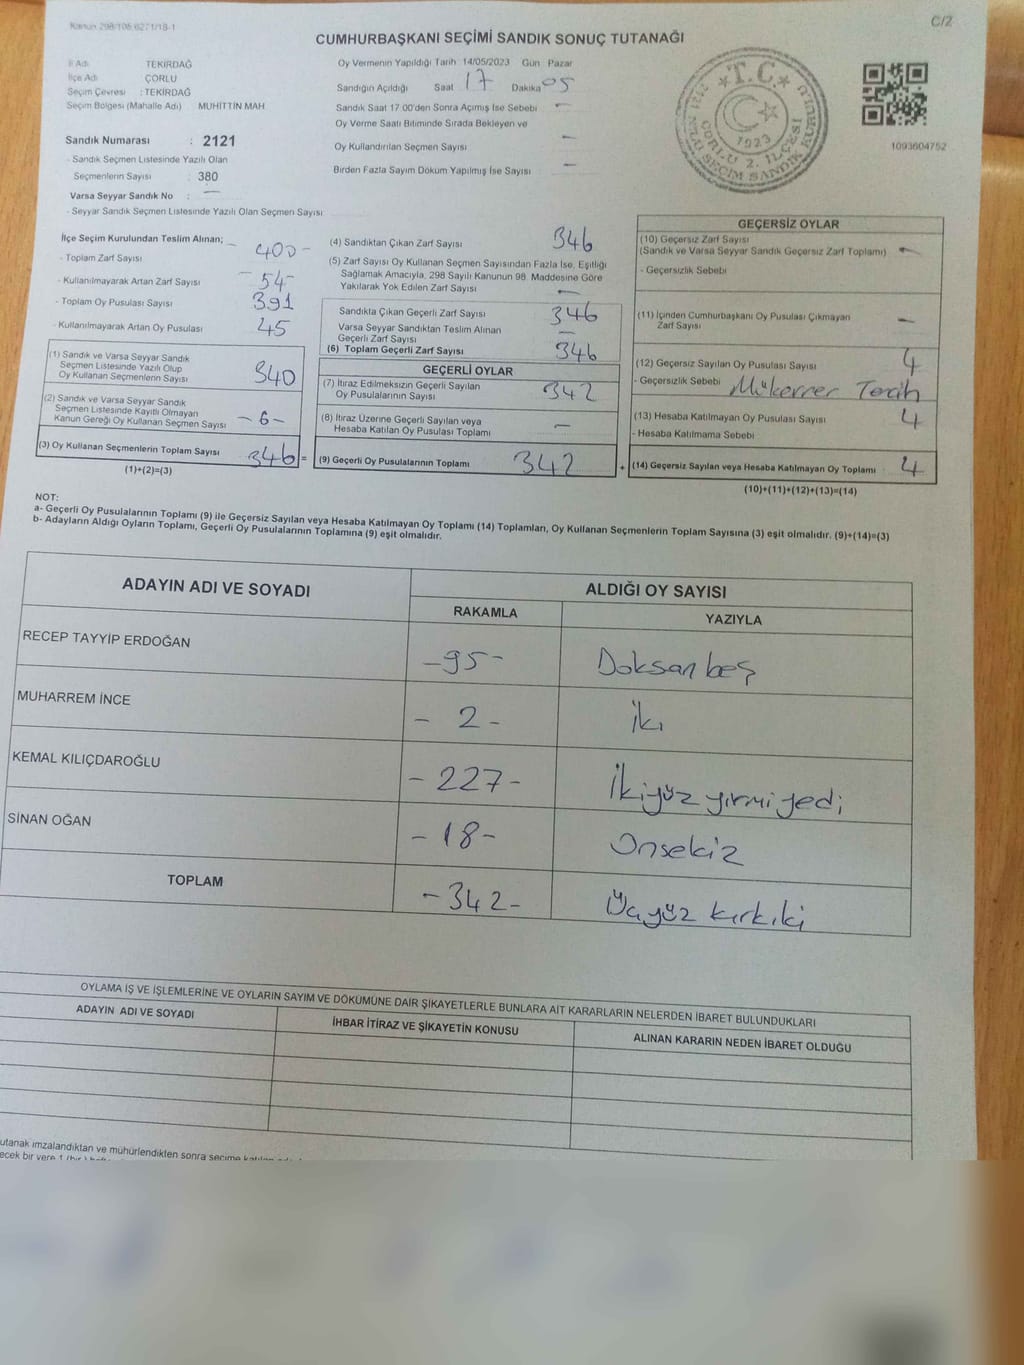 Kanun 298/105 6271/18-1
C/2
CUMHURBAŞKANI SEÇİMİ SANDIK SONUÇ TUTANAĞI
İl Adı TEKİRDAĞ
İlçe Adı ÇORLU
Seçim Çevresi : TEKİRDAĞ
Seçim Bölgesi (Mahalle Adı) MUHİTTİN MAH
Sandık Numarası : 2121
- Sandık Seçmen Listesinde Yazılı Olan
Seçmenlerin Sayısı : 380
Varsa Seyyar Sandık No : —
- Seyyar Sandık Seçmen Listesinde Yazılı Olan Seçmen Sayısı
Oy Vermenin Yapıldığı Tarih 14/05/2023 Gün Pazar
Sandığın Açıldığı Saat 17 Dakika 05
Sandık Saat 17 00'den Sonra Açımış İse Sebebi —
Oy Verme Saati Bitiminde Sırada Bekleyen ve
Oy Kullandırılan Seçmen Sayısı —
Birden Fazla Sayım Döküm Yapılmış İse Sayısı —
T.C.
1923
ÇORLU 2. İLÇESİ
1093604752
İlçe Seçim Kurulundan Teslim Alınan;
- Toplam Zarf Sayısı 400 -
- Kullanılmayarak Artan Zarf Sayısı - 54 -
- Toplam Oy Pusulası Sayısı 391
- Kullanılmayarak Artan Oy Pusulası 45
(1) Sandık ve Varsa Seyyar Sandık
Seçmen Listesinde Yazılı Olup
Oy Kullanan Seçmenlerin Sayısı 340
(2) Sandık ve Varsa Seyyar Sandık
Seçmen Listesinde Kayıtlı Olmayan
Kanun Gereği Oy Kullanan Seçmen Sayısı - 6 -
(3) Oy Kullanan Seçmenlerin Toplam Sayısı 346 =
(1)+(2)=(3)
(4) Sandıktan Çıkan Zarf Sayısı 346
(5) Zarf Sayısı Oy Kullanan Seçmen Sayısından Fazla İse, Eşitliği
Sağlamak Amacıyla, 298 Sayılı Kanunun 98. Maddesine Göre
Yakılarak Yok Edilen Zarf Sayısı —
Sandıkta Çıkan Geçerli Zarf Sayısı 346
Varsa Seyyar Sandıktan Teslim Alınan
Geçerli Zarf Sayısı —
(6) Toplam Geçerli Zarf Sayısı 346
GEÇERLİ OYLAR
(7) İtiraz Edilmeksizin Geçerli Sayılan
Oy Pusulalarının Sayısı 342
(8) İtiraz Üzerine Geçerli Sayılan veya
Hesaba Katılan Oy Pusulası Toplamı —
(9) Geçerli Oy Pusulalarının Toplamı 342 +
GEÇERSİZ OYLAR
(10) Geçersiz Zarf Sayısı
(Sandık ve Varsa Seyyar Sandık Geçersiz Zarf Toplamı) —
- Geçersizlik Sebebi
(11) İçinden Cumhurbaşkanı Oy Pusulası Çıkmayan
Zarf Sayısı —
(12) Geçersiz Sayılan Oy Pusulası Sayısı 4
- Geçersizlik Sebebi Mükerrer Tercih
(13) Hesaba Katılmayan Oy Pusulası Sayısı 4
- Hesaba Katılmama Sebebi
(14) Geçersiz Sayılan veya Hesaba Katılmayan Oy Toplamı 4
(10)+(11)+(12)+(13)=(14)
NOT:
a- Geçerli Oy Pusulalarının Toplamı (9) ile Geçersiz Sayılan veya Hesaba Katılmayan Oy Toplamı (14) Toplamları, Oy Kullanan Seçmenlerin Toplam Sayısına (3) eşit olmalıdır. (9)+(14)=(3)
b- Adayların Aldığı Oyların Toplamı, Geçerli Oy Pusulalarının Toplamına (9) eşit olmalıdır.
ADAYIN ADI VE SOYADI
ALDIĞI OY SAYISI
RAKAMLA YAZIYLA
RECEP TAYYİP ERDOĞAN - 95 - Doksan beş
MUHARREM İNCE - 2 - İki
KEMAL KILIÇDAROĞLU - 227 - İkiyüz yirmi yedi
SİNAN OĞAN - 18 - Onsekiz
TOPLAM - 342 - Üçyüz kırkiki
OYLAMA İŞ VE İŞLEMLERİNE VE OYLARIN SAYIM VE DÖKÜMÜNE DAİR ŞİKAYETLERLE BUNLARA AİT KARARLARIN NELERDEN İBARET BULUNDUKLARI
ADAYIN ADI VE SOYADI İHBAR İTİRAZ VE ŞİKAYETİN KONUSU ALINAN KARARIN NEDEN İBARET OLDUĞU
utanak imzalandıktan ve mühürlendikten sonra seçime
ecek bir yere 1 (bir)